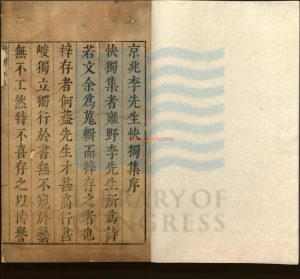 京兆李先生快獨集序
快獨集者雍野李先生所爲詩
若文余爲蒐輯而梓存之者也
梓存者何葢先生才甚高行甚
峻獨立獨行於書無不窺於藝
無不工然特不喜存之以博譽
LIBRARY OF
CONGRESS